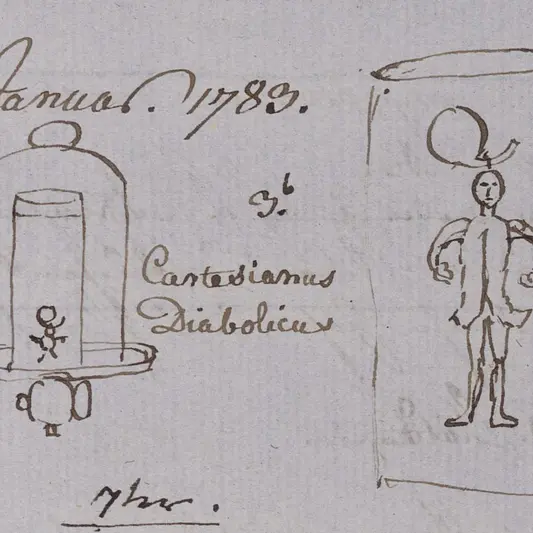 Januar. 1783.
3.b
Cartesianus
Diabolicus